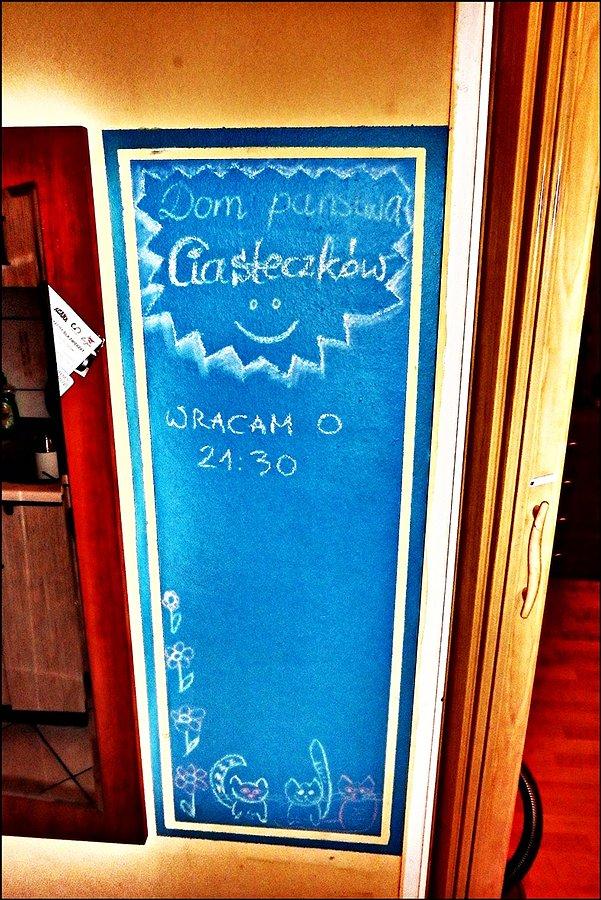 Dom państwa
Ciasteczków
WRACAM O
21:30